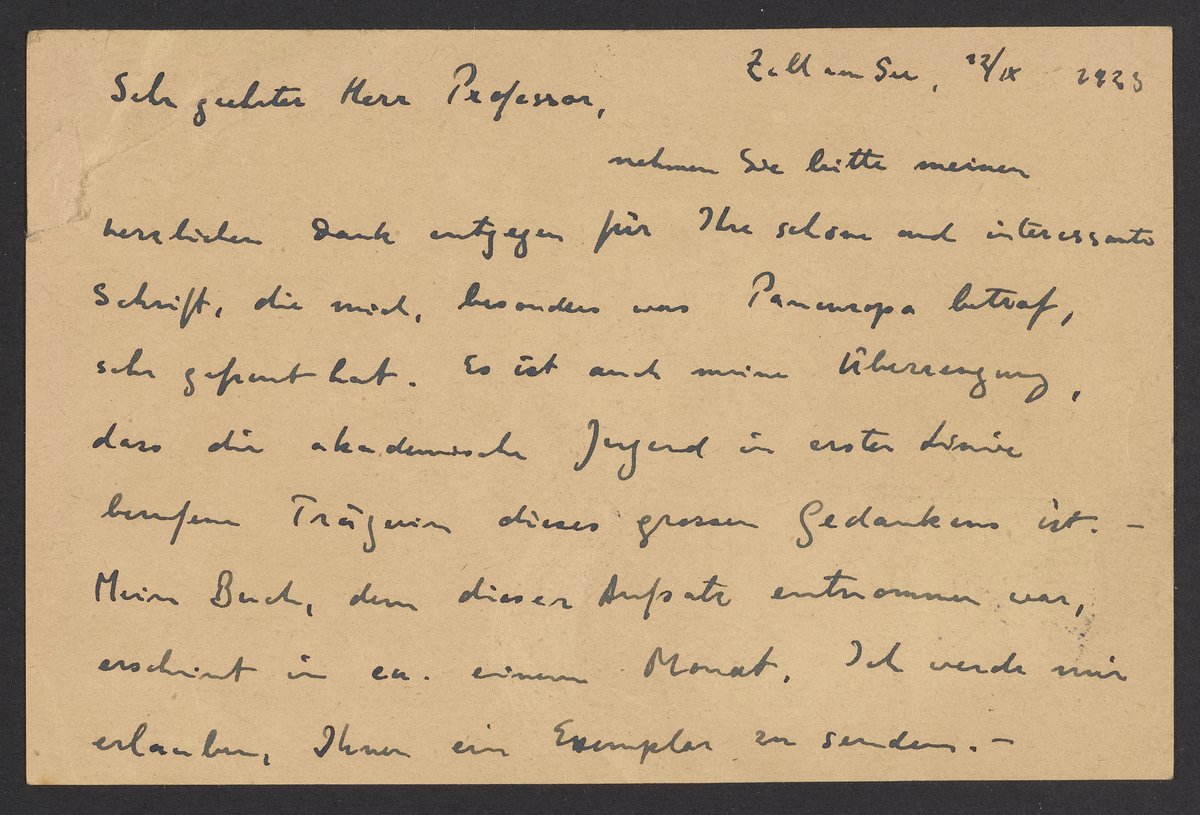 Zell am See, 22/IX 1923
Sehr geehrter Herr Professor,
nehmen Sie bitte meinen
herzlichen Dank entgegen für Ihre schöne und interessante
Schrift, die mich, besonders was Paneuropa betraf,
sehr gefreut hat. Es ist auch meine Überzeugung,
dass die akademische Jugend in erster Linie
berufene Trägerin dieses grossen Gedankens ist. –
Mein Buch, dem dieser Aufsatz entnommen war,
erscheint in ca. einem Monat. Ich werde mir
erlauben, Ihnen ein Exemplar zu senden. –